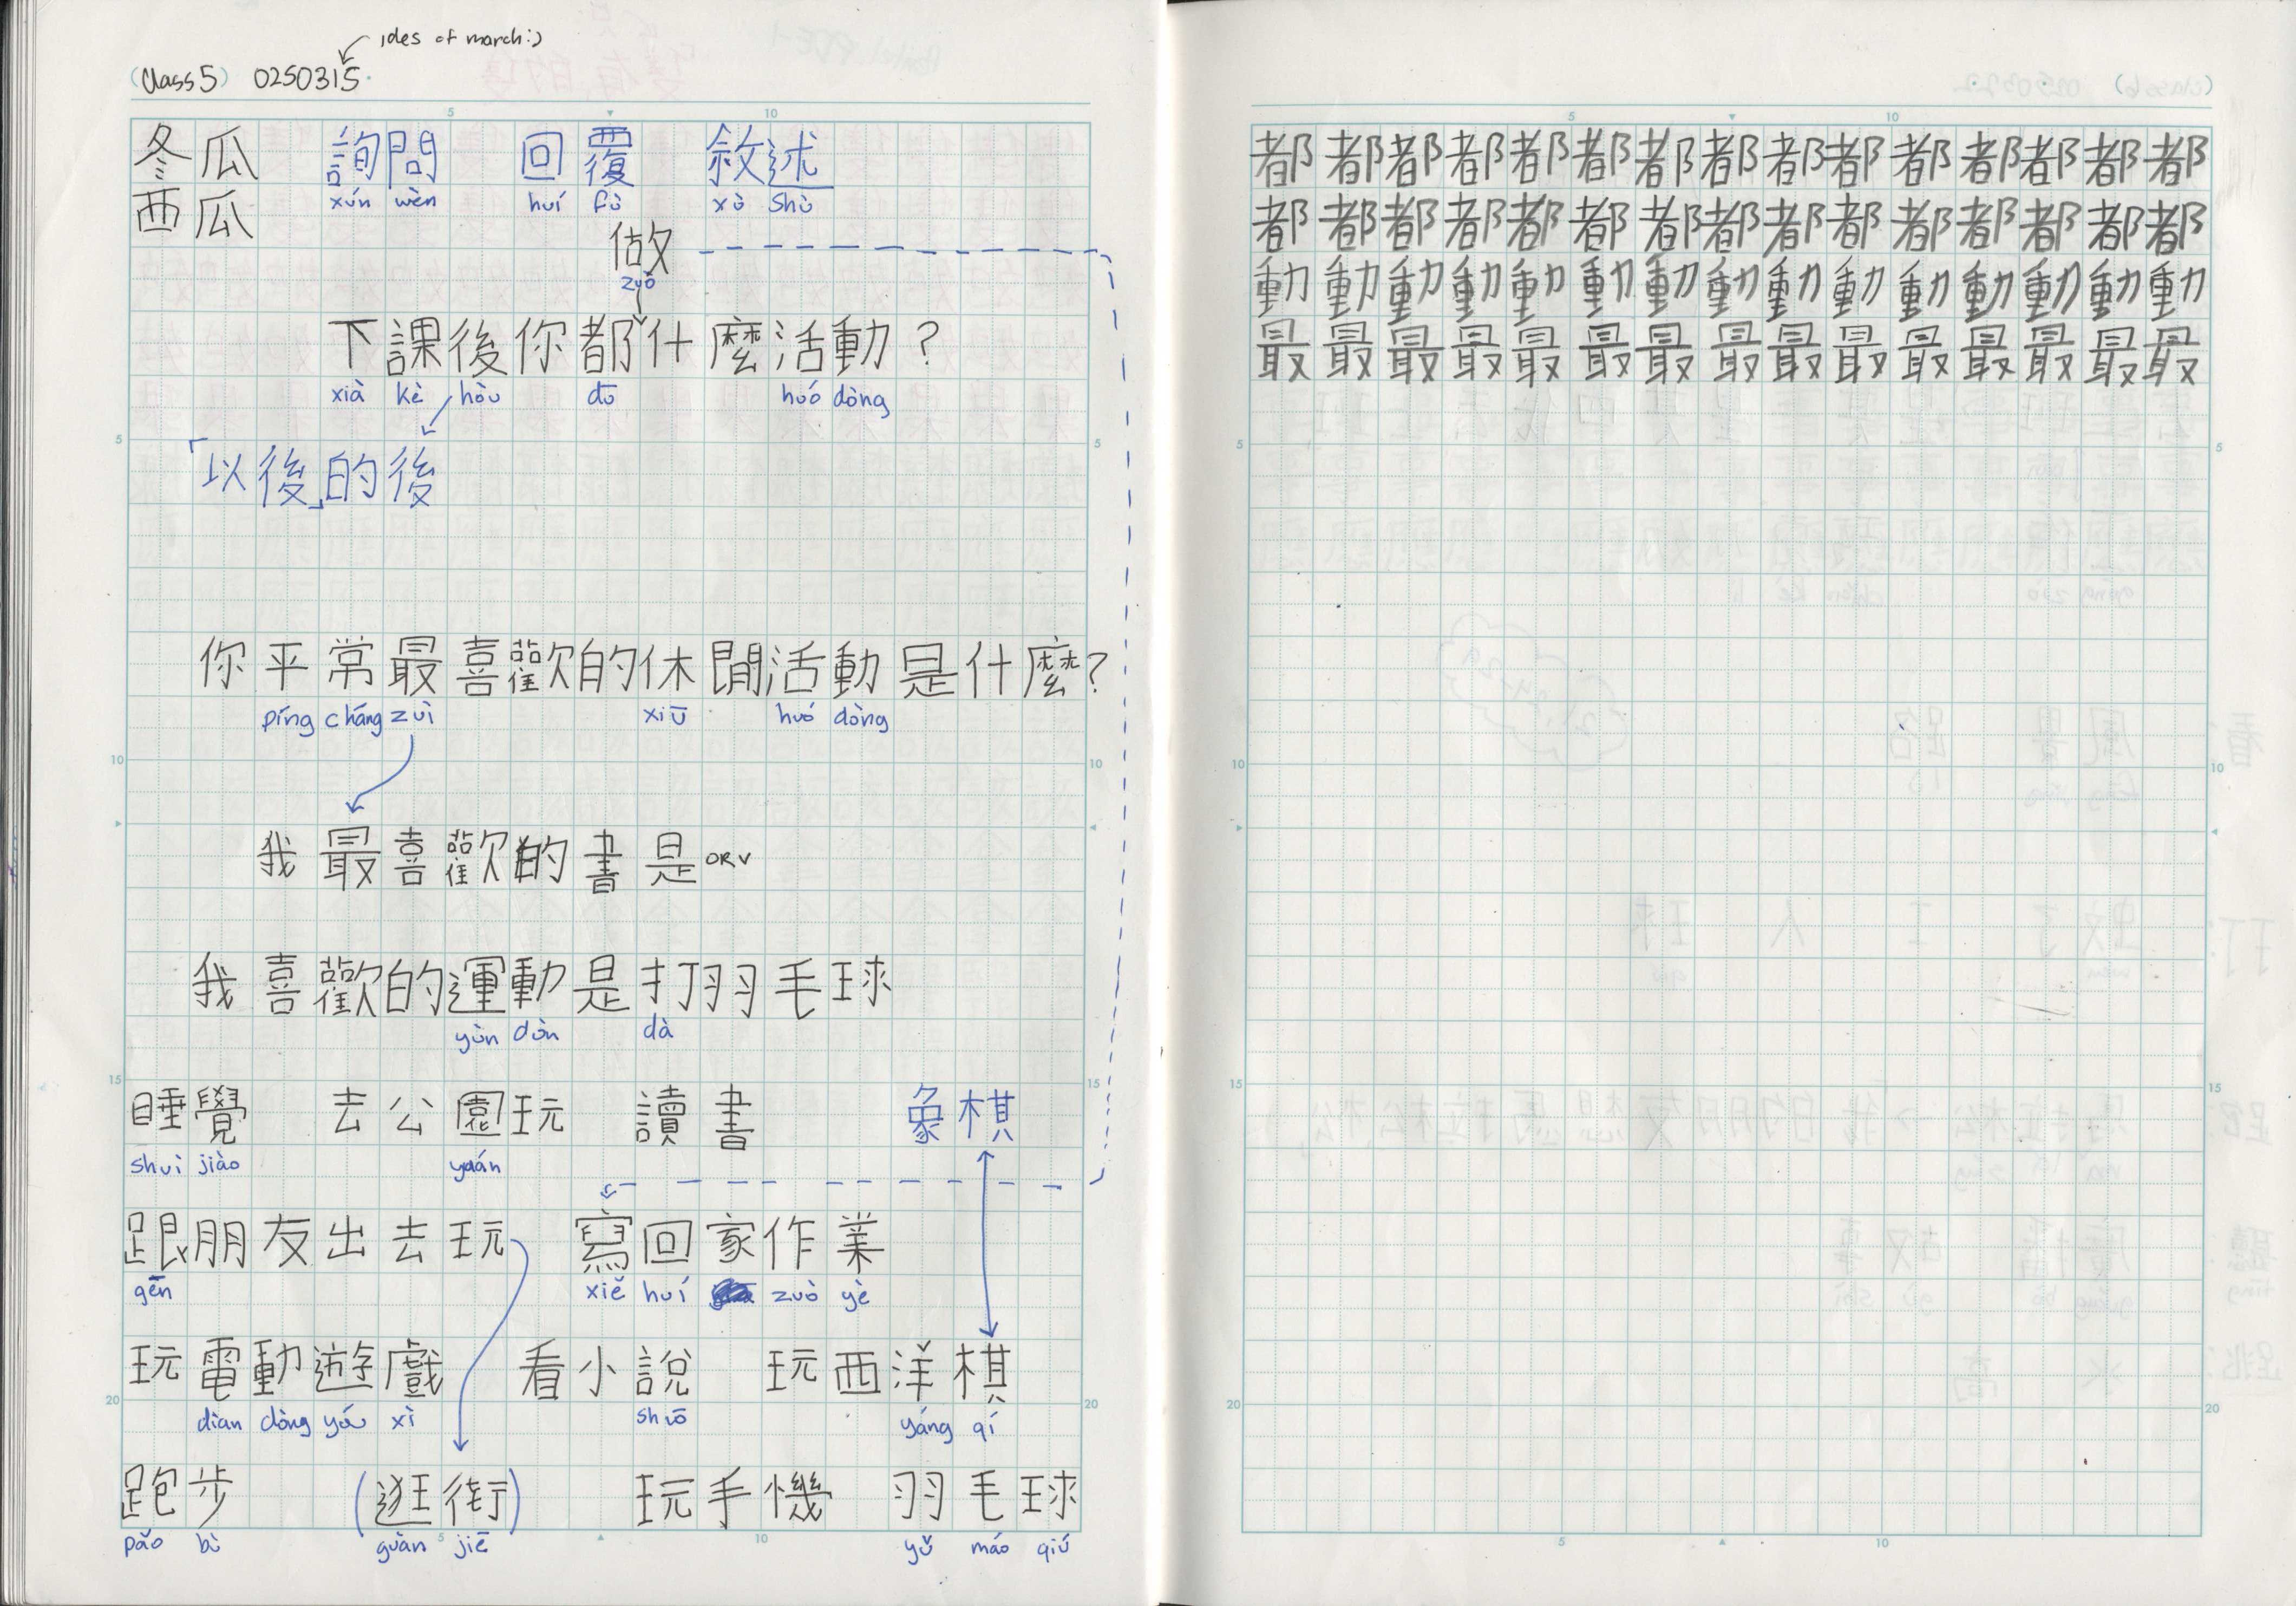 ides of march:)
(Class 5) 0250315.
冬瓜 詢問 回覆 敘述
xún wèn huí fù xù shù
西瓜
做
zuò
下課後你都什麼活動?
xià kè hòu dō huó dòng
「以後」的後
你平常最喜歡的休閒活動是什麼?
píng cháng zuì xiū huó dòng
我最喜歡的書是ORV
我喜歡的運動是打羽毛球
yùn dòn dà
睡覺 去公園玩 讀書 象棋
shuì jiào yuán
跟朋友出去玩 寫回家作業
gēn xiě huí zuò yè
玩電動遊戲 看小說 玩西洋棋
dìan dòng yóu xì shuō yáng qí
跑步 (逛街) 玩手機 羽毛球
pǎo bù guàn jiē yǔ máo qiú
都都都都都都都都都都都都都都都
都都都都都都都都都都都都都都都
動動動動動動動動動動動動動動動
最最最最最最最最最最最最最最最